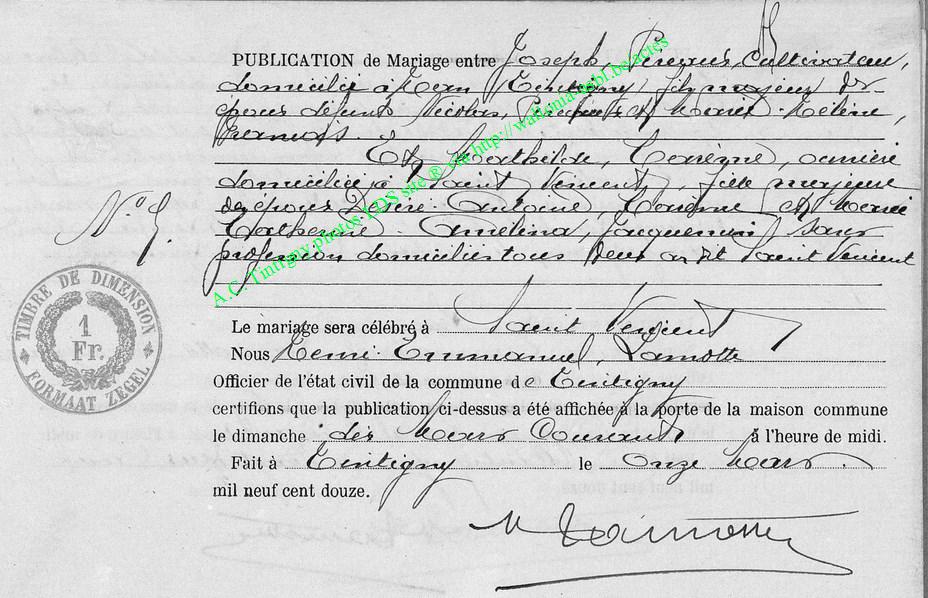 PUBLICATION de Mariage entre Joseph, Cultivateur,
domicilié à Han Tintigny fils majeur de
époux défunts Nicolas, et Marie - Hélène,
Et Mathilde,
domiciliée à Saint Vincent, fille majeure
des époux Désiré Antoine, et Marie
Catherine Amélina, Jacquemin sans
profession domiciliés tous deux au dit Saint Vincent
N°
TIMBRE DE DIMENSION
1
Fr.
FORMAAT ZEGEL
A.C. Tintigny photos FDS site ® via http://wallonia-asbl.be/actes
Le mariage sera célébré à Saint Vincent
Nous Henri Emmanuel, Lamotte
Officier de l'état civil de la commune de Tintigny
certifions que la publication ci-dessus a été affichée à la porte de la maison commune
le dimanche dix Mars Courant à l'heure de midi.
Fait à Tintigny le Onze Mars.
mil neuf cent douze.
Lamotte